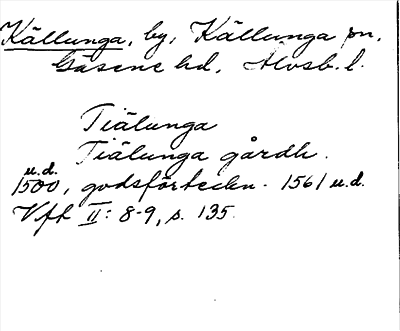 Källunga, by, Källunga sn,
Gäsene hd, Älvsb. l.
Tiälunga
Tiälunga gårdh.
u.d.
1500, godsförteckn. 1561 u.d.
Vft II: 8-9, s. 135.